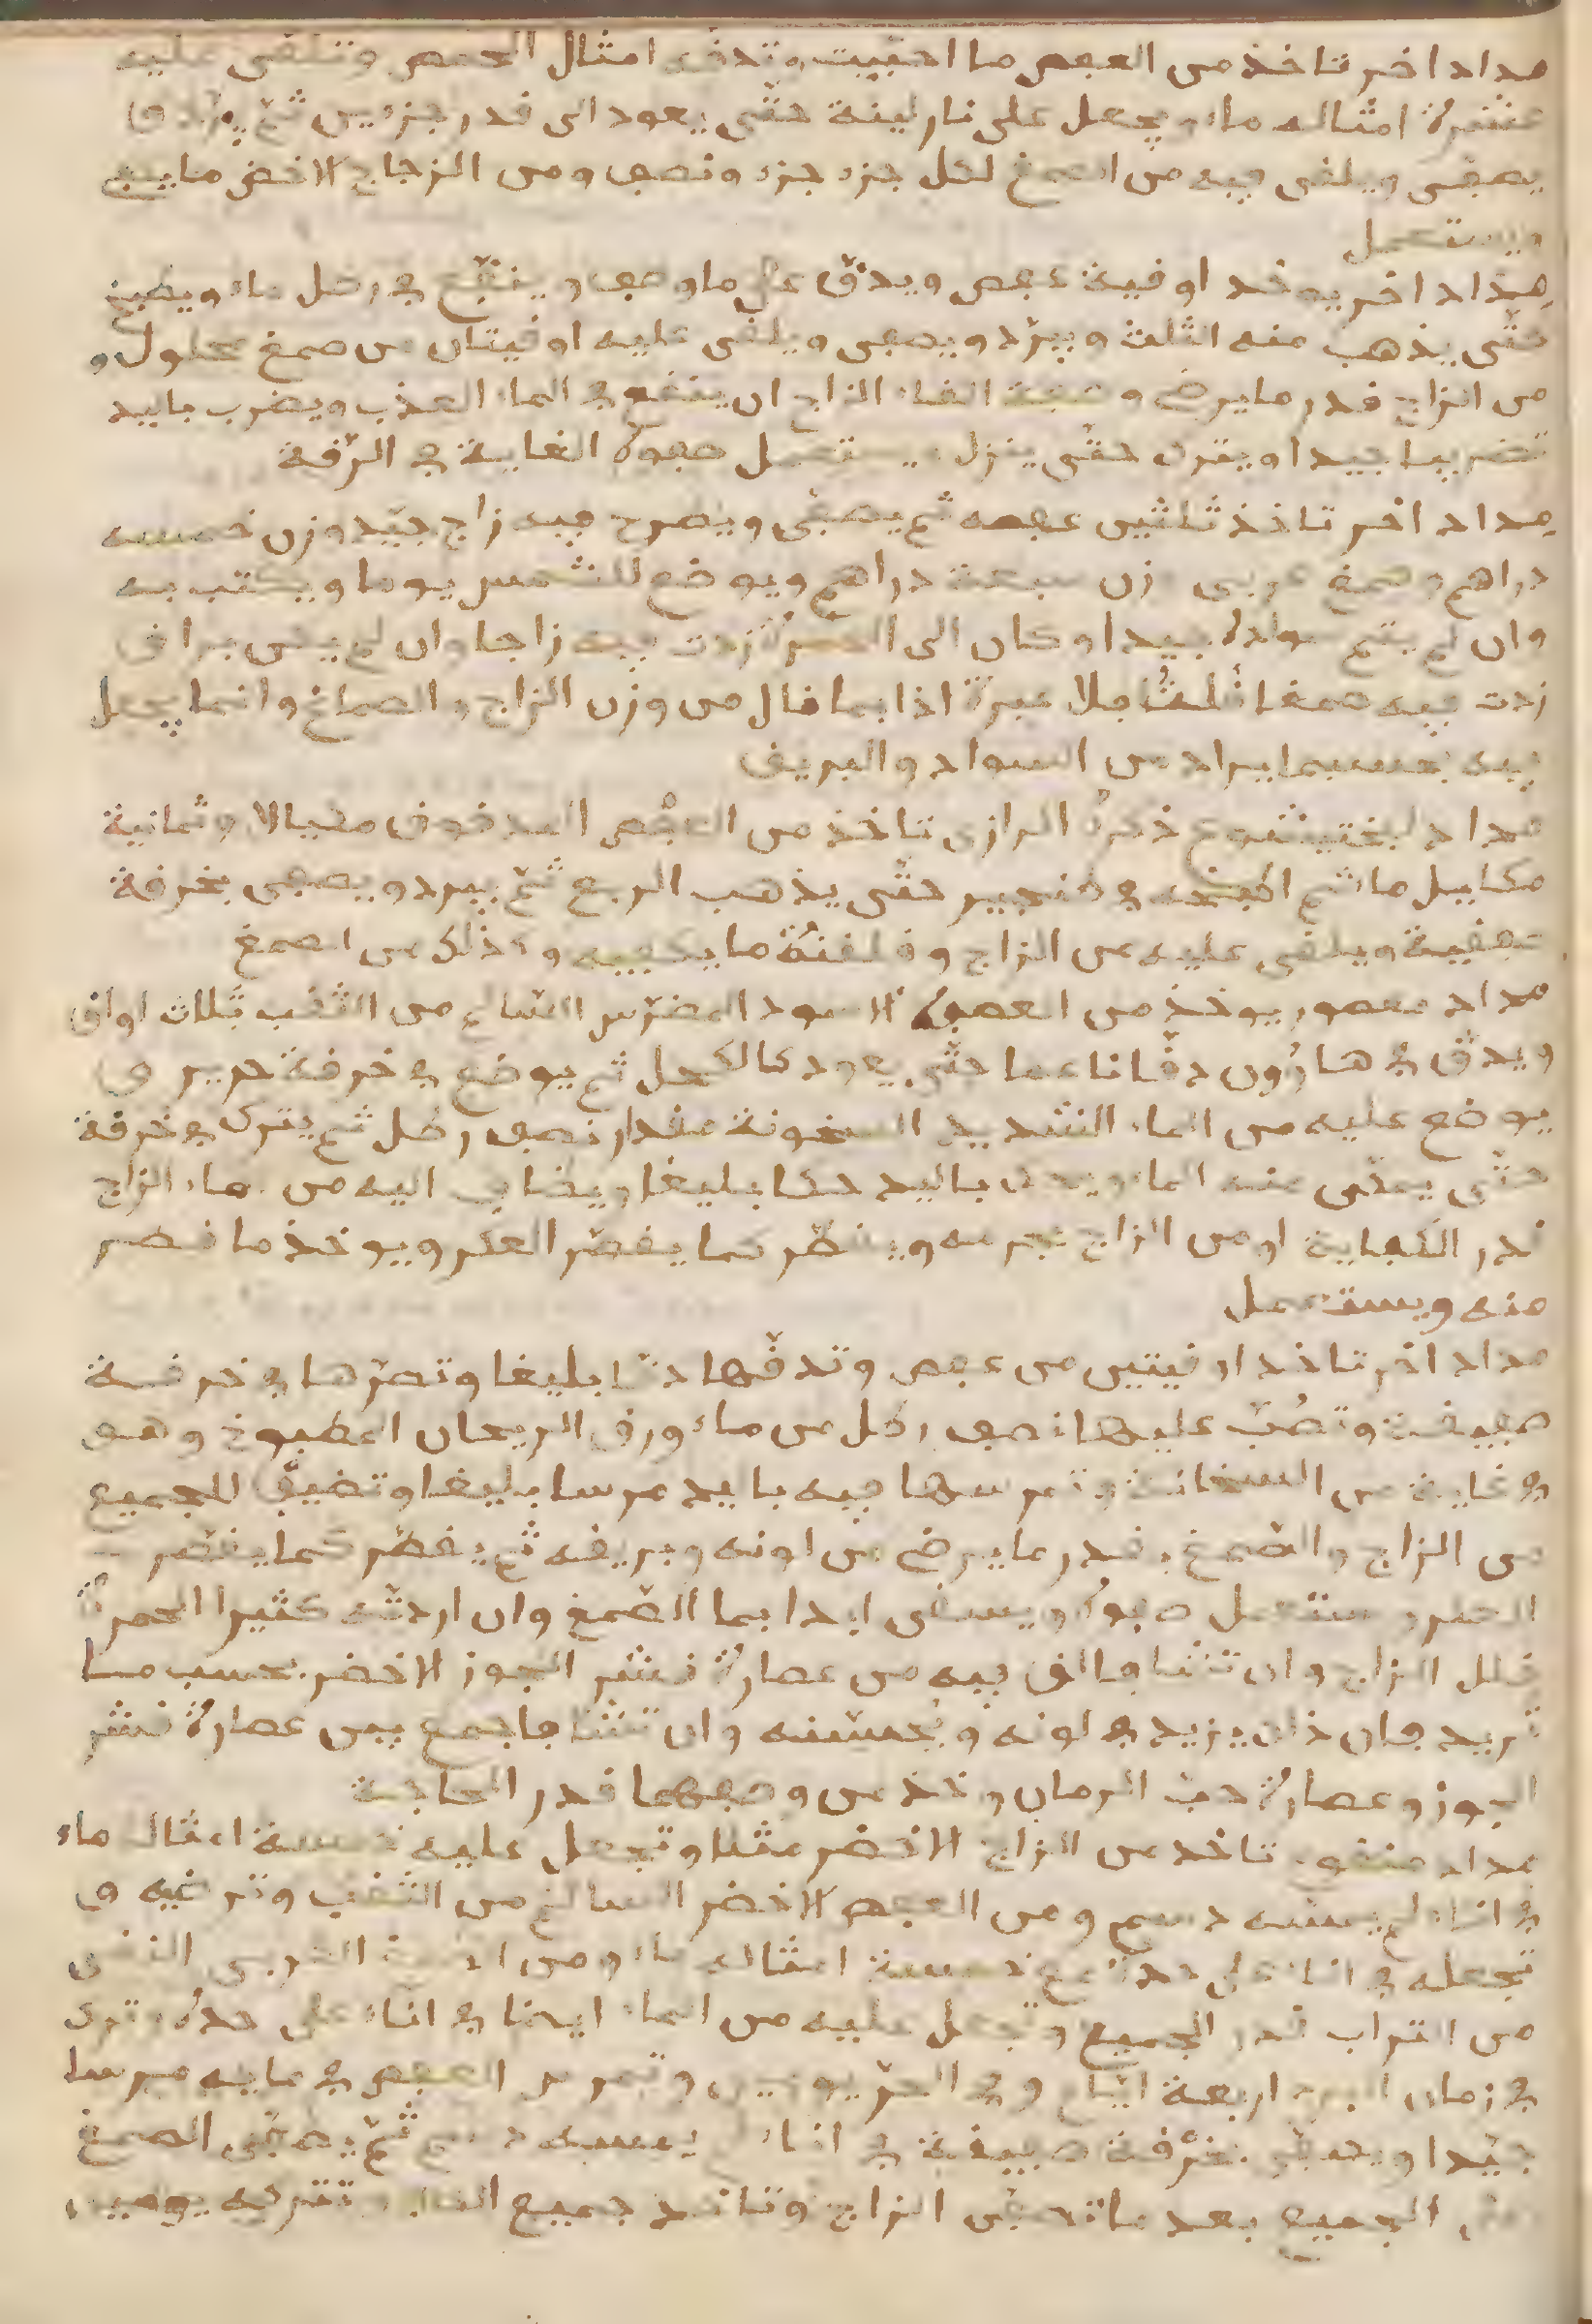 مداد اخر تاخذ من العفص ما احببت وتدقه امثال الحمص وتلقى عليه
عشرة امثاله ماء ويجعل على نار لينة حتى يعود الى قدر جزءين ثم
يصفى ويلقى فيه من الصمغ لكل جزء جزء ونصف ومن الزجاج الاخضر ما
ويستعمل
مداد اخر يوخد اوقية عفص ويدق على ما وصف وينقع في رطل ماء ويطبخ
حتى يذهب منه الثلث ويبرد ويصفى ويلقى عليه اوقيتان من صمغ محلول و
من الزاج قدر ما يرض وصفة القاء الزاج ان ينقع في الماء العذب ويضرب باليد
تضريبا جيدا ويترك حتى ينزل ويستعمل صفوة الغاية في الرقة
مداد اخر تاخذ ثلثين عفصه ثم يصفى ويطرح فيه زاج جيد وزن خمسه
دراهم وصمغ عربى وزن سبعة دراهم ويوضع للشمس يوما ويكتب به
وان لم يتم سواده جيدا وكان الى الحمرة زدت فيه زاجا وان لم يبق براق
زدت فيه صمغا فلا عبرة اذا بما قال من وزن الزاج والصماغ وانما يجعل
فيه بحسبما يراد من السواد والبريق
مداد لبختيشوع ذكره الرازى تاخذ من العفص المدقوق مكيالا وثمانية
مكاييل ماء ثم اطبخه في طنجير حتى يذهب الربع ثم يبرد ويصفى بخرفة
صفيفة ويلقى عليه من الزاج وقلقنة ما يكفيه وكذلك من الصمغ
مداد معصور يوخذ من العفص الاسود المضرس السالم من الثقب ثلاث اواق
ويدق في هاوون دقا ناعما حتى يعود كالكحل ثم يوضع في خرقة حرير و
يوضع عليه من الماء الشديد السخونة مقدار نصف رطل ثم يترك في خرقة
حتى يصفى عنه الماء ويحك باليد حكا بليغا ويضاف اليه من ماء الزاج
قدر الكفاية او من الزاج بجرمه ويقطر كما يقطر العكر ويوخذ ما قطر
منه ويستعمل
مداد اخر تاخذ اوقيتين من عفص وتدقها دقا بليغا وتصرها في خرقة
صفيقة وتصب عليها نصف رطل من ماء ورق الريحان المطبوخ وهو
في غاية من السخانة وتمرسها فيه باليد مرسا بليغا وتضيف للجميع
من الزاج والصمغ قدر ما يرض من لونه وبريقه ثم يقطر كما يقطر
الخمر ويستعمل صفوه ويسقى ابدا بما الصمغ وان اردته كثير الحمرة
قلل الزاج وان تشا فالق فيه من عصارة قشر الجوز الاخضر بحسب ما
تريد فان ذلك يزيد في لونه ويحسنه وان تشا فاجمع بين عصارة قشر
الجوز وعصارة حب الرمان وخذ من وصفهما قدر الحاجة
مداد منقوع تاخد من الزاج الاخضر مثلا وتجعل عليه خمسة امثاله ماء
في اناء لم يمسه دسم ومن العفص الاخضر السالم من الثقب وترضيه و
تجعله في اناء على حدة مع خمسة امثاله ماء ومن الصمغ العربى النقى
من التراب قدر الجميع وتجعل عليه من الماء ايضا في اناء على حدة ويترك
في زمان البرد اربعة ايام وفي الحر يومين وتمرس العفص في مايه مرسا
جيدا ويصفى بخرقة صفيقة في اناء لم يمسه دسم ثم يصفى الصمغ
على الجميع بعد ما تصفى الزاج وتاخد جميع وتتركه يومين